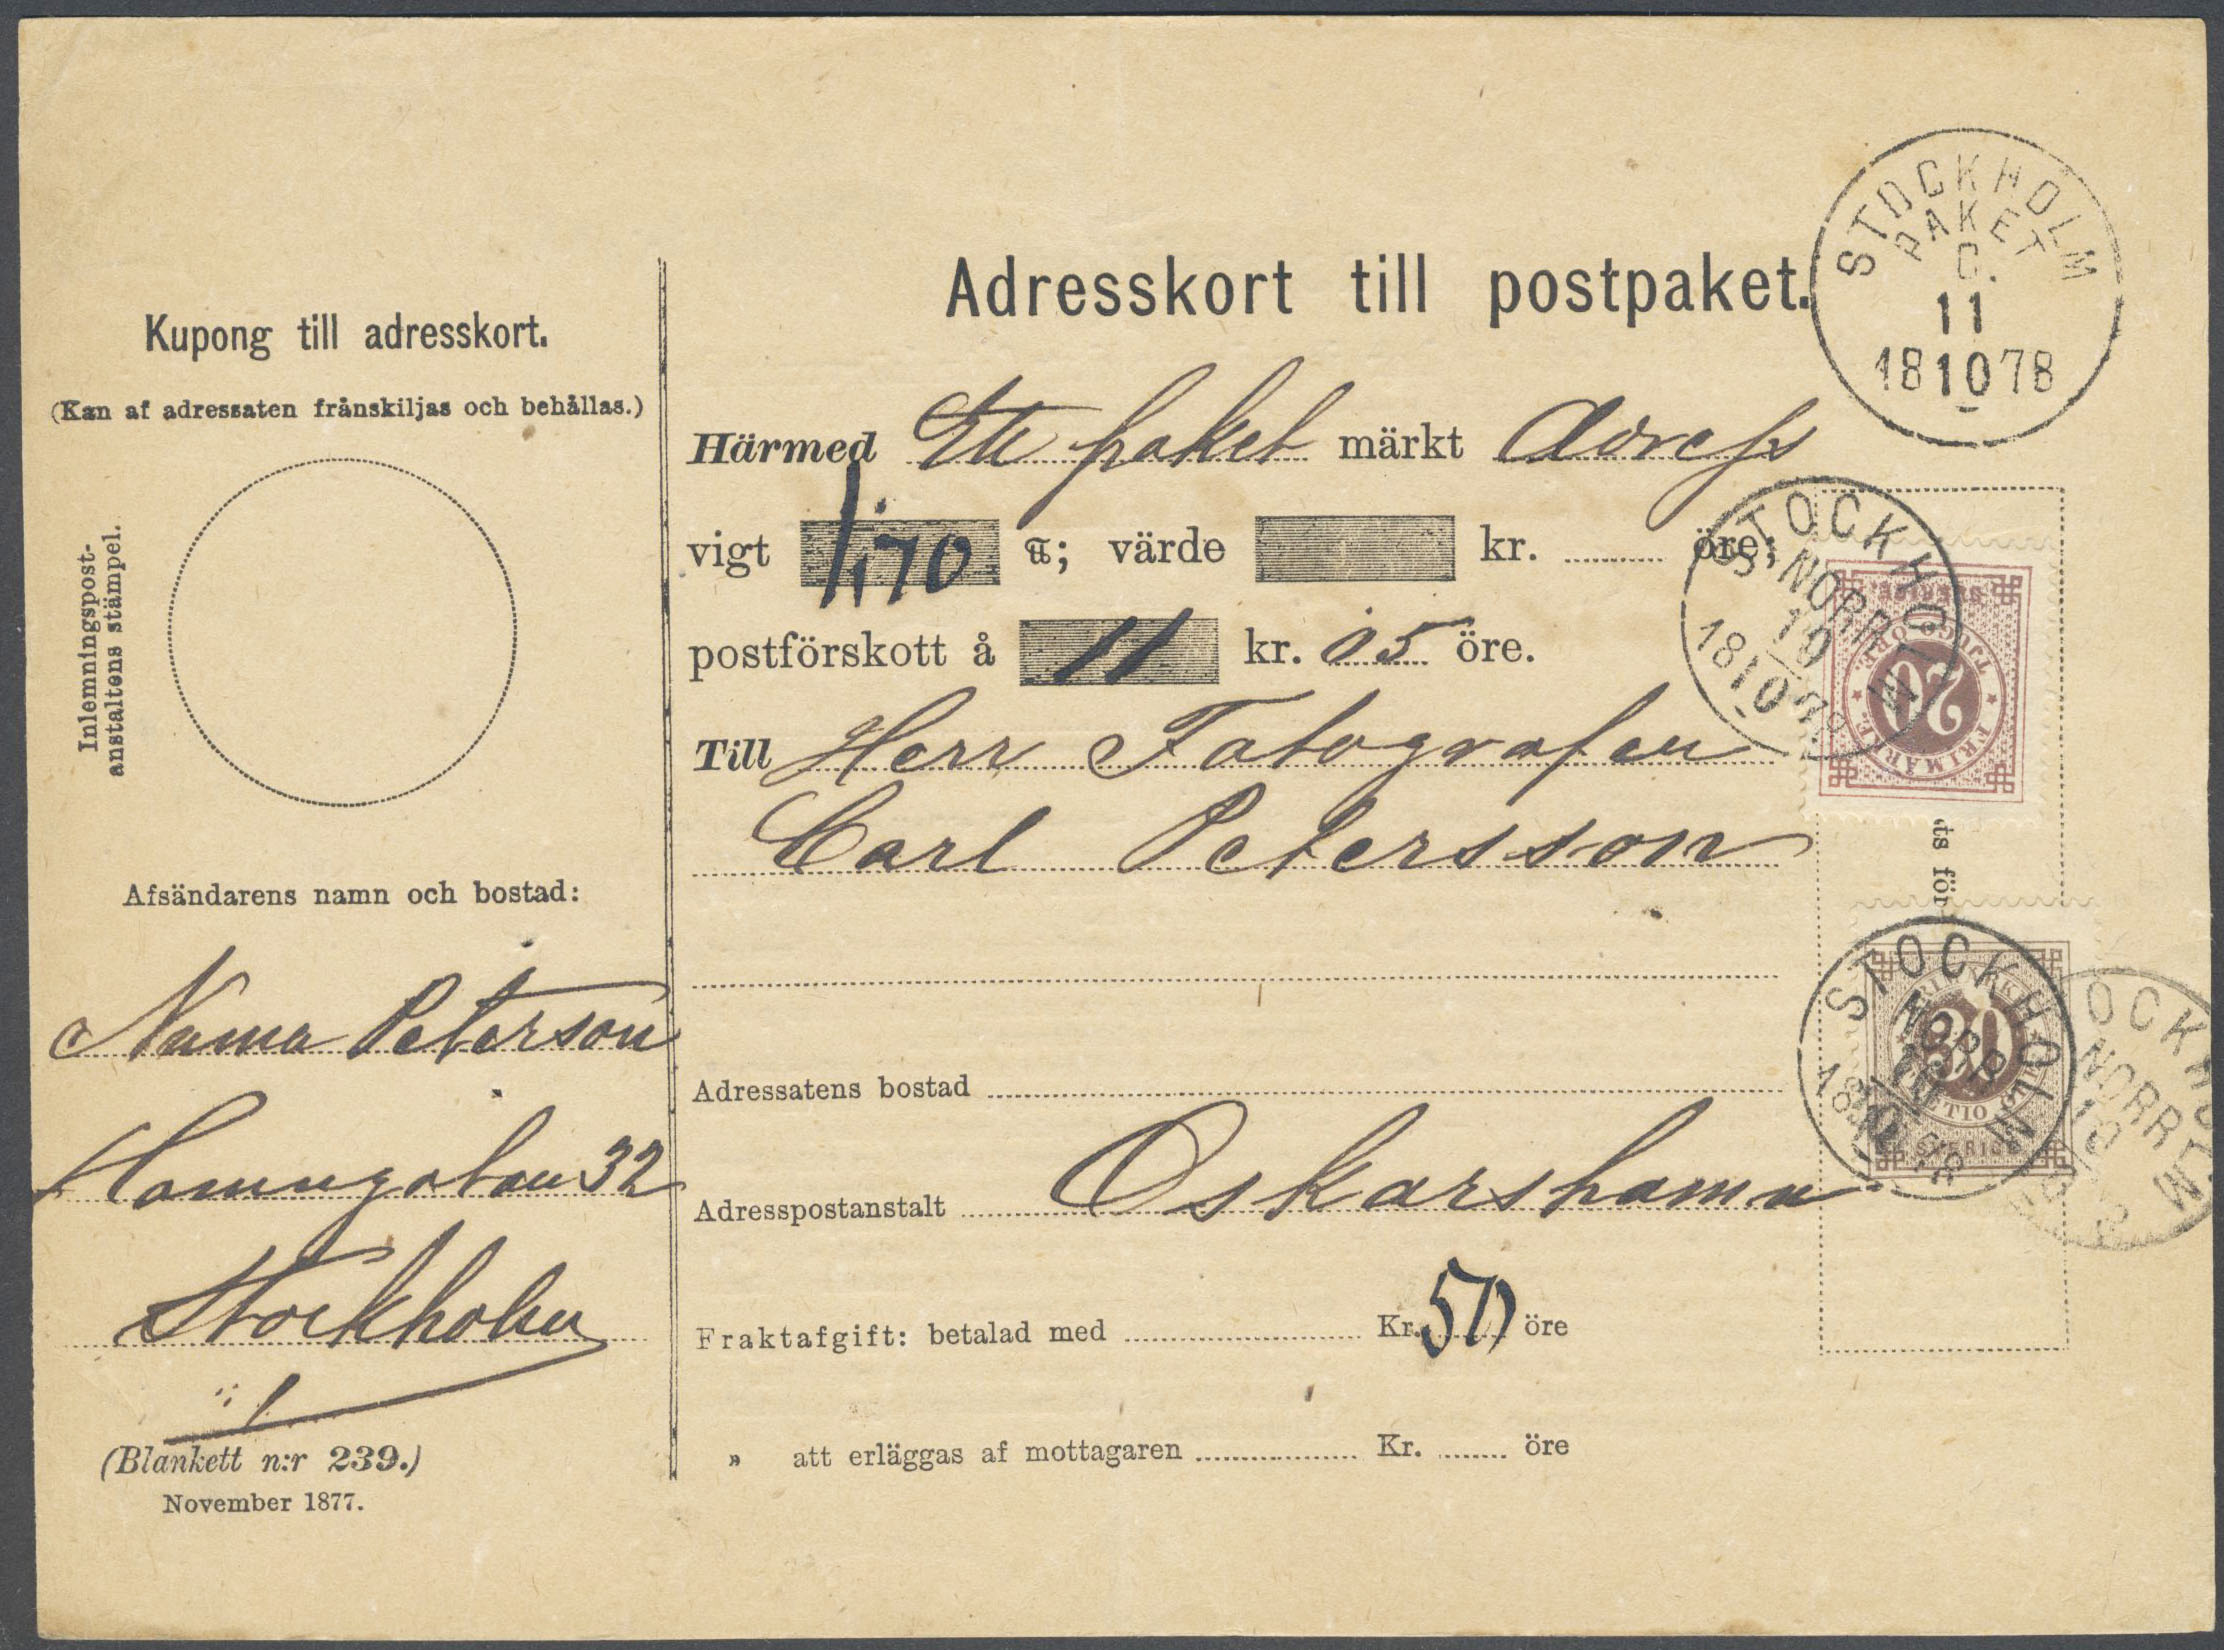 Kupong till adresskort.
(Kan af adressaten frånskiljas och behållas.)
Inlemningspost-
anstaltens stämpel.
Afsändarens namn och bostad:
Peterson
Hamngatan 32
Stockholm
(Blankett n:r 239.)
November 1877.
Adresskort till postpaket.
Härmed Ett paket märkt Adress
vigt 70 ℔; värde kr. öre;
postförskott å 11 kr. 05 öre.
Till Herr Fotografen
Carl Petersson
Adressatens bostad
Adresspostanstalt Oskarshamn
Fraktafgift: betalad med Kr. 50 öre
» att erläggas af mottagaren Kr. öre
STOCKHOLM
PAKET
C.
11
18 10 78
STOCKHOLM
NORR
10
18 10 78
SVERIGE
TJUGO ÖRE.
20
FRIMÄRKE
ts för
STOCKHOLM
NORR
10
18 10 78
FRIMÄRKE
30
TRETIO ÖRE
SVERIGE
STOCKHOLM
NORR
10